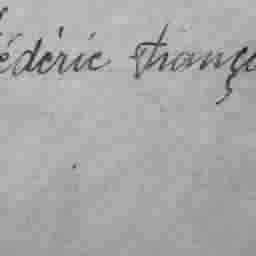 édéric Franço